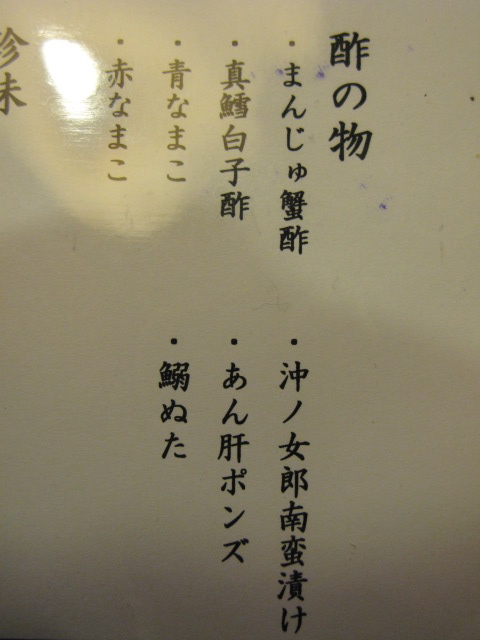 酢の物
・まんじゅ蟹酢
・沖ノ女郎南蛮漬け
・真鱈白子酢
・あん肝ポンズ
・青なまこ
・鰯ぬた
・赤なまこ
珍味